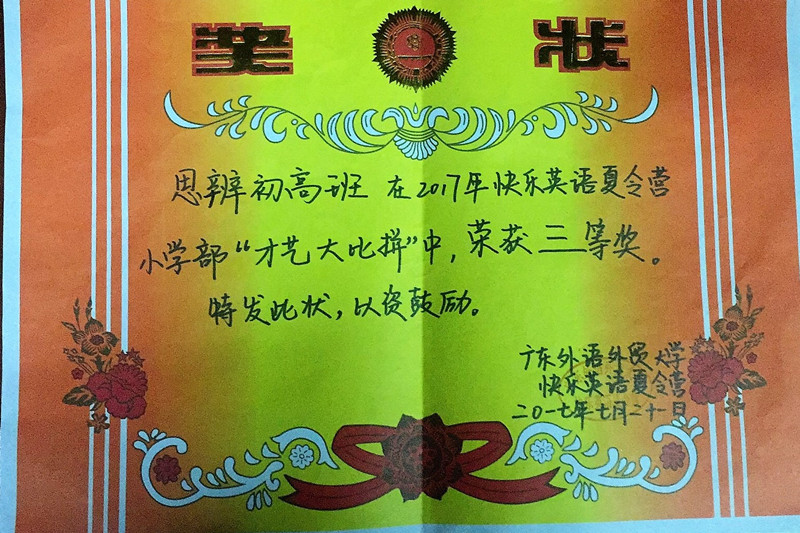 奖状
思辨初高班 在2017年快乐英语夏令营
小学部“才艺大比拼”中，荣获三等奖。
特发此状，以资鼓励。
广东外语外贸大学
快乐英语夏令营
二〇一七年七月二十一日